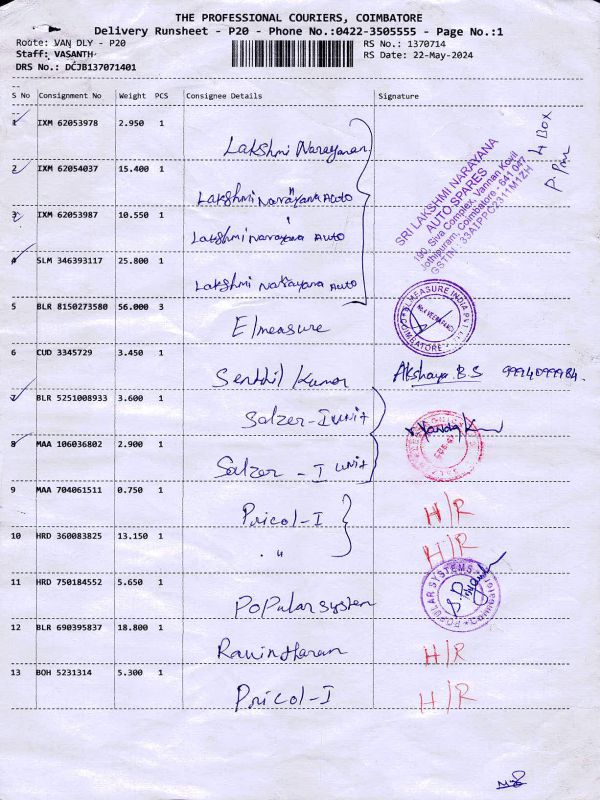 THE PROFESSIONAL COURIERS, COIMBATORE
Delivery Runsheet - P20 - Phone No.:0422-3505555 - Page No.:1
Route: VAN DLY - P20
RS No.: 1370714
Staff: VASANTH
RS Date: 22-May-2024
DRS No.: DCJB137071401
S No Consignment No Weight PCS Consignee Details Signature
1 IXM 62053978 2.950 1 Lakshmi Narayanan
2 IXM 62054037 15.400 1 Lakshmi Narayana Auto
3 IXM 62053987 10.550 1 Lakshmi Narayana Auto
4 SLM 346393117 25.800 1 Lakshmi Narayana Auto
SRI LAKSHMI NARAYANA
AUTO SPARES
190, Siva Complex, Vannan Kovil
Jothipuram, Coimbatore - 641 047
GSTIN : 33AIPPC2311M1ZH
4 BOX
5 BLR 8150273580 56.000 3 Elmeasure
ELMEASURE INDIA PVT
COIMBATORE
6 CUD 3345729 3.450 1 Senthil Kumar Akshaya. B.S 9994099984.
7 BLR 5251008933 3.600 1 Salzer-I unit
8 MAA 106036802 2.900 1 Salzer - I unit
9 MAA 704061511 0.750 1 Pricol-I H/R
10 HRD 360083825 13.150 1 " H/R
11 HRD 750184552 5.650 1 Popular system
POPULAR SYSTEMS
12 BLR 690395837 18.800 1 Ravintharan H/R
13 BOH 5231314 5.300 1 Pricol-I H/R